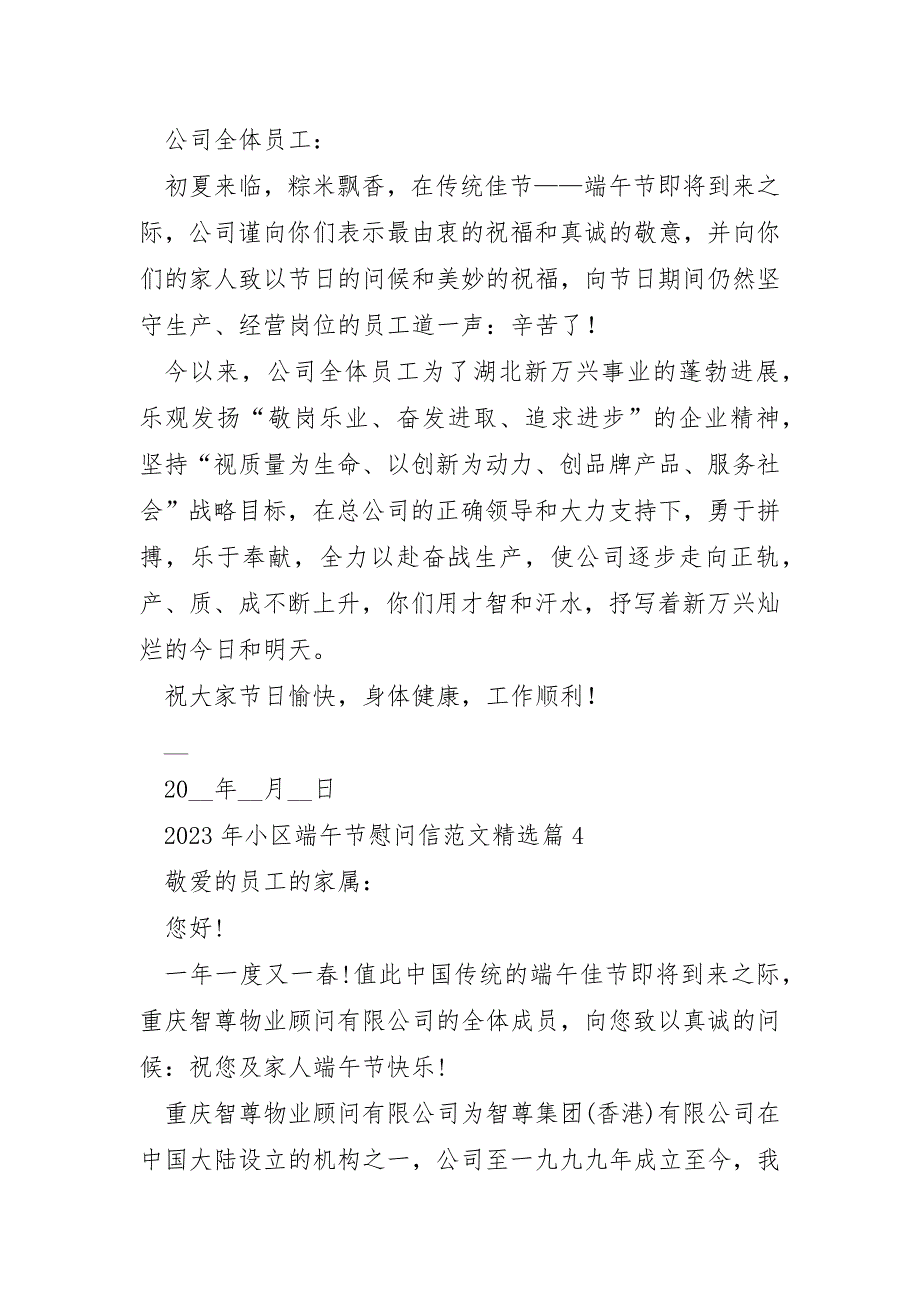 公司全体员工：
初夏来临，粽米飘香，在传统佳节——端午节即将到来之
际，公司谨向你们表示最由衷的祝福和真诚的敬意，并向你
们的家人致以节日的问候和美妙的祝福，向节日期间仍然坚
守生产、经营岗位的员工道一声：辛苦了！
今以来，公司全体员工为了湖北新万兴事业的蓬勃进展，
乐观发扬“敬岗乐业、奋发进取、追求进步”的企业精神，
坚持“视质量为生命、以创新为动力、创品牌产品、服务社
会”战略目标，在总公司的正确领导和大力支持下，勇于拼
搏，乐于奉献，全力以赴奋战生产，使公司逐步走向正轨，
产、质、成不断上升，你们用才智和汗水，抒写着新万兴灿
烂的今日和明天。
祝大家节日愉快，身体健康，工作顺利！
__
20__年__月__日
2023 年小区端午节慰问信范文精选篇 4
敬爱的员工的家属：
您好!
一年一度又一春!值此中国传统的端午佳节即将到来之际，
重庆智尊物业顾问有限公司的全体成员，向您致以真诚的问
候：祝您及家人端午节快乐!
重庆智尊物业顾问有限公司为智尊集团(香港)有限公司在
中国大陆设立的机构之一，公司至一九九九年成立至今，我